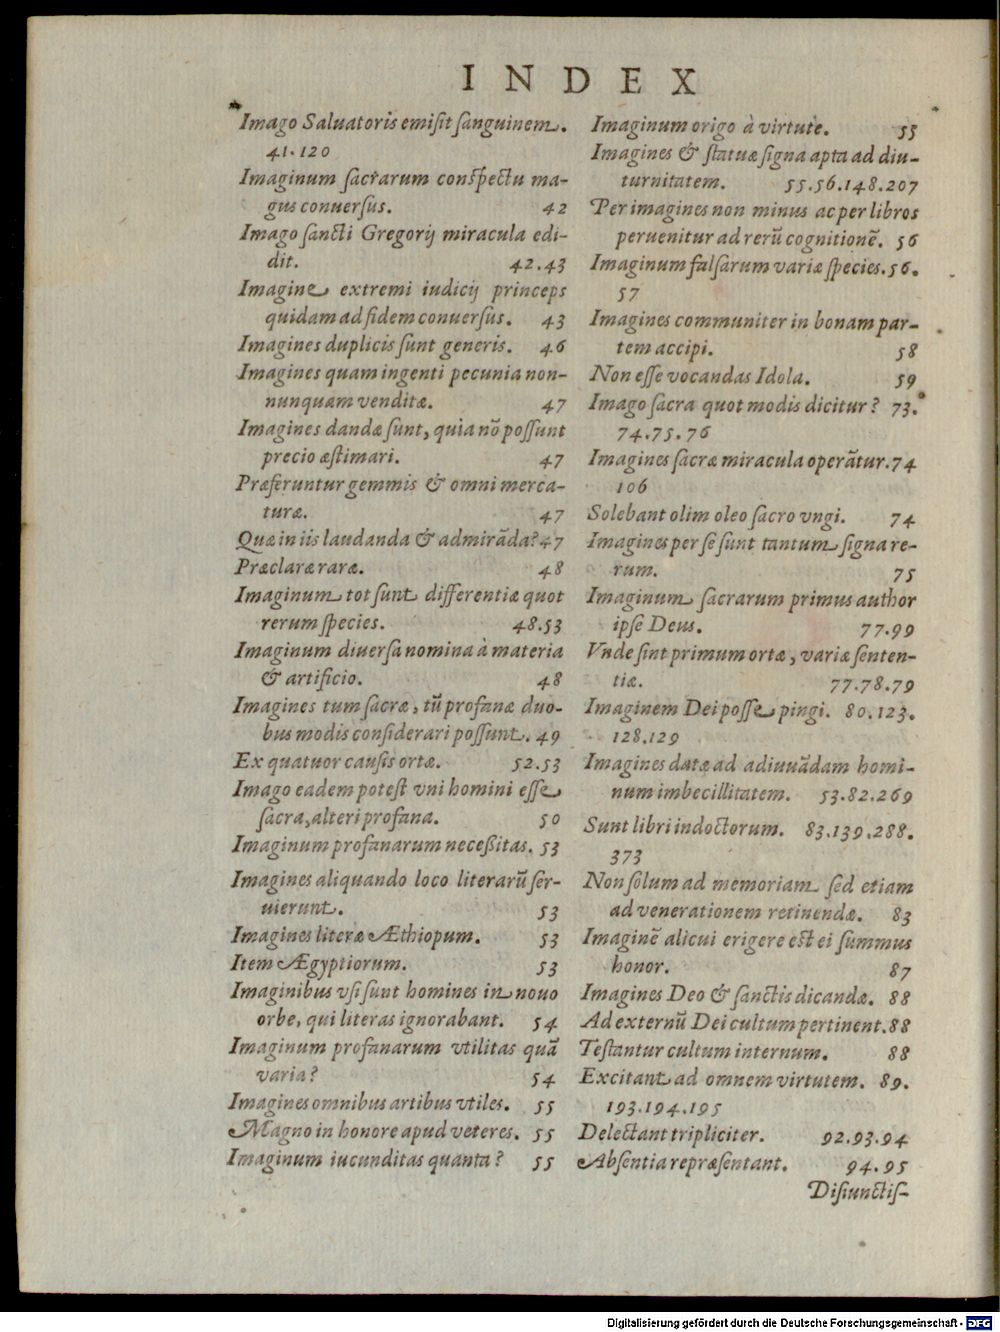 INDEX
Imago Saluatoris emiſit ſanguinem.
41.120
Imaginum ſacrarum conſpectu ma-
gus conuerſus. 42
Imago ſancti Gregorij miracula edi-
dit. 42.43
Imagine extremi iudicij princeps
quidam ad fidem conuerſus. 43
Imagines duplicis ſunt generis. 46
Imagines quam ingenti pecunia non-
nunquam venditæ. 47
Imagines dandæ ſunt, quia nō poſſunt
precio æſtimari. 47
Præferuntur gemmis & omni merca-
turæ. 47
Quæ in iis laudanda & admirāda? 47
Præclaræ raræ. 48
Imaginum tot ſunt differentiæ quot
rerum ſpecies. 48.53
Imaginum diuerſa nomina à materia
& artificio. 48
Imagines tum ſacræ, tū profanæ duo-
bus modis conſiderari poſſunt. 49
Ex quatuor cauſis ortæ. 52.53
Imago eadem poteſt vni homini eſſe
ſacra, alteri profana. 50
Imaginum profanarum neceßitas. 53
Imagines aliquando loco literarū ſer-
uierunt. 53
Imagines literæ Æthiopum. 53
Item Ægyptiorum. 53
Imaginibus vſi ſunt homines in nouo
orbe, qui literas ignorabant. 54
Imaginum profanarum vtilitas quā
varia? 54
Imagines omnibus artibus vtiles. 55
Magno in honore apud veteres. 55
Imaginum iucunditas quanta? 55
Imaginum origo à virtute. 55
Imagines & ſtatuæ ſigna apta ad diu-
turnitatem. 55.56.148.207
Per imagines non minus ac per libros
peruenitur ad rerū cognitionē. 56
Imaginum falſarum variæ ſpecies. 56.
57
Imagines communiter in bonam par-
tem accipi. 58
Non eſſe vocandas Idola. 59
Imago ſacra quot modis dicitur? 73.
74.75.76
Imagines ſacræ miracula operātur. 74
106
Solebant olim oleo ſacro vngi. 74
Imagines per ſe ſunt tantum ſigna re-
rum. 75
Imaginum ſacrarum primus author
ipſe Deus. 77.99
Vnde ſint primum ortæ, variæ ſenten-
tiæ. 77.78.79
Imaginem Dei poſſe pingi. 80.123.
128.129
Imagines datæ ad adiuuādam homi-
num imbecillitatem. 53.82.269
Sunt libri indoctorum. 83.139.288.
373
Non ſolum ad memoriam ſed etiam
ad venerationem retinendæ. 83
Imaginē alicui erigere eſt ei ſummus
honor. 87
Imagines Deo & ſanctis dicandæ. 88
Ad externū Dei cultum pertinent. 88
Teſtantur cultum internum. 88
Excitant ad omnem virtutem. 89.
193.194.195
Delectant tripliciter. 92.93.94
Abſentia repræſentant. 94.95
Diſiunctiſ-
Digitalisierung gefördert durch die Deutsche Forschungsgemeinschaft - DFG